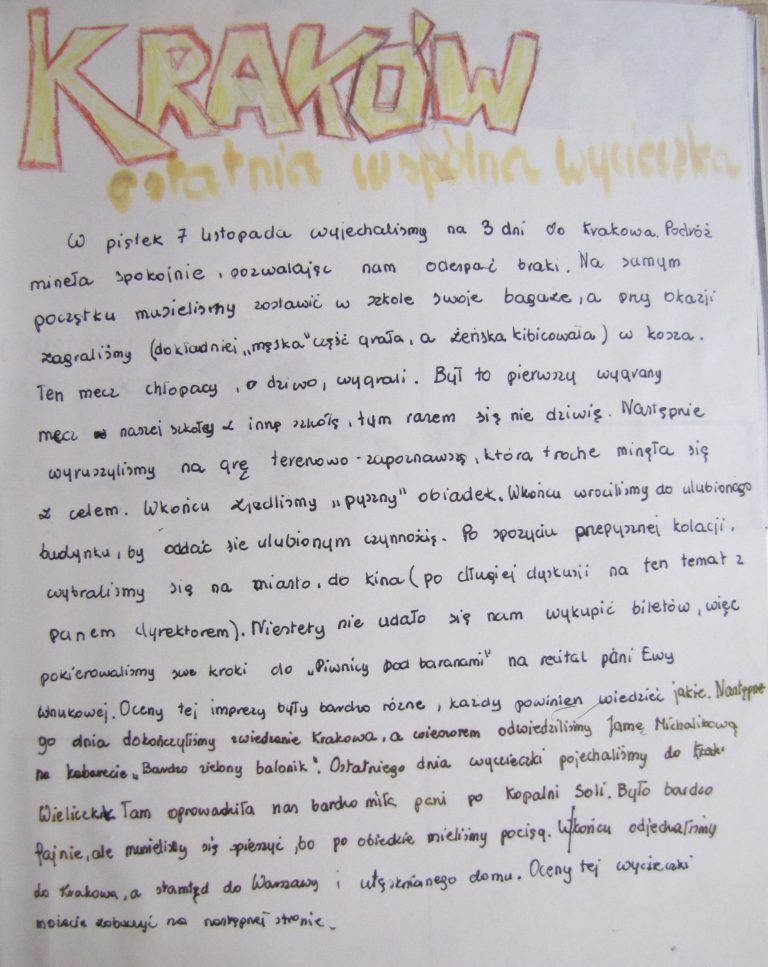 KRAKÓW
ostatnia wspólna wycieczka
W piątek 7 listopada wyjechalismy na 3 dni do Krakowa. Podróż
mineła spokojnie, pozwalając nam odespać braki. Na samym
początku musielismy zostawić w szkole swoje bagaże, a przy okazji
zagraliśmy (dokładniej „męska" część grała, a żeńska kibicowała) w kosza.
Ten mecz chłopacy, o dziwo, wygrali. Był to pierwszy wygrany
mecz naszej szkoły z inną szkołą, tym razem się nie dziwię. Następnie
wyruszylismy na grę terenowo-zapoznawszą, która troche minęła się
z celem. Wkońcu zjedlismy „pyszny" obiadek. Wkońcu wrocilismy do ulubionego
budynku, by oddać sie ulubionym czynnością. Po spożyciu przepysznej kolacji,
wybralismy się na miasto, do kina (po długiej dyskusji na ten temat z
panem dyrektorem). Niestety nie udało się nam wykupić biletów, więc
pokierowalismy swe kroki do „Piwnicy pod baranami" na recital pani Ewy
Wnukowej. Oceny tej imprezy były bardzo różne, każdy powinien wiedzieć jakie. Następne
go dnia dokończyliśmy zwiedzanie Krakowa, a wieczorem odwiedziliśmy Jamę Michalikową
na kabarecie „Bardzo zielony balonik". Ostatniego dnia wycieczki pojechaliśmy do
Wieliczki. Tam oprowadziła nas bardzo miła pani po Kopalni Soli. Było bardzo
fajnie, ale musieliśmy się spieszyć, bo po obiedzie mieliśmy pociąg. Wkońcu odjechaliśmy
do Krakowa, a stamtąd do Warszawy i utęsknianego domu. Oceny tej wycieczki
możecie zobaczyć na następnej stronie.